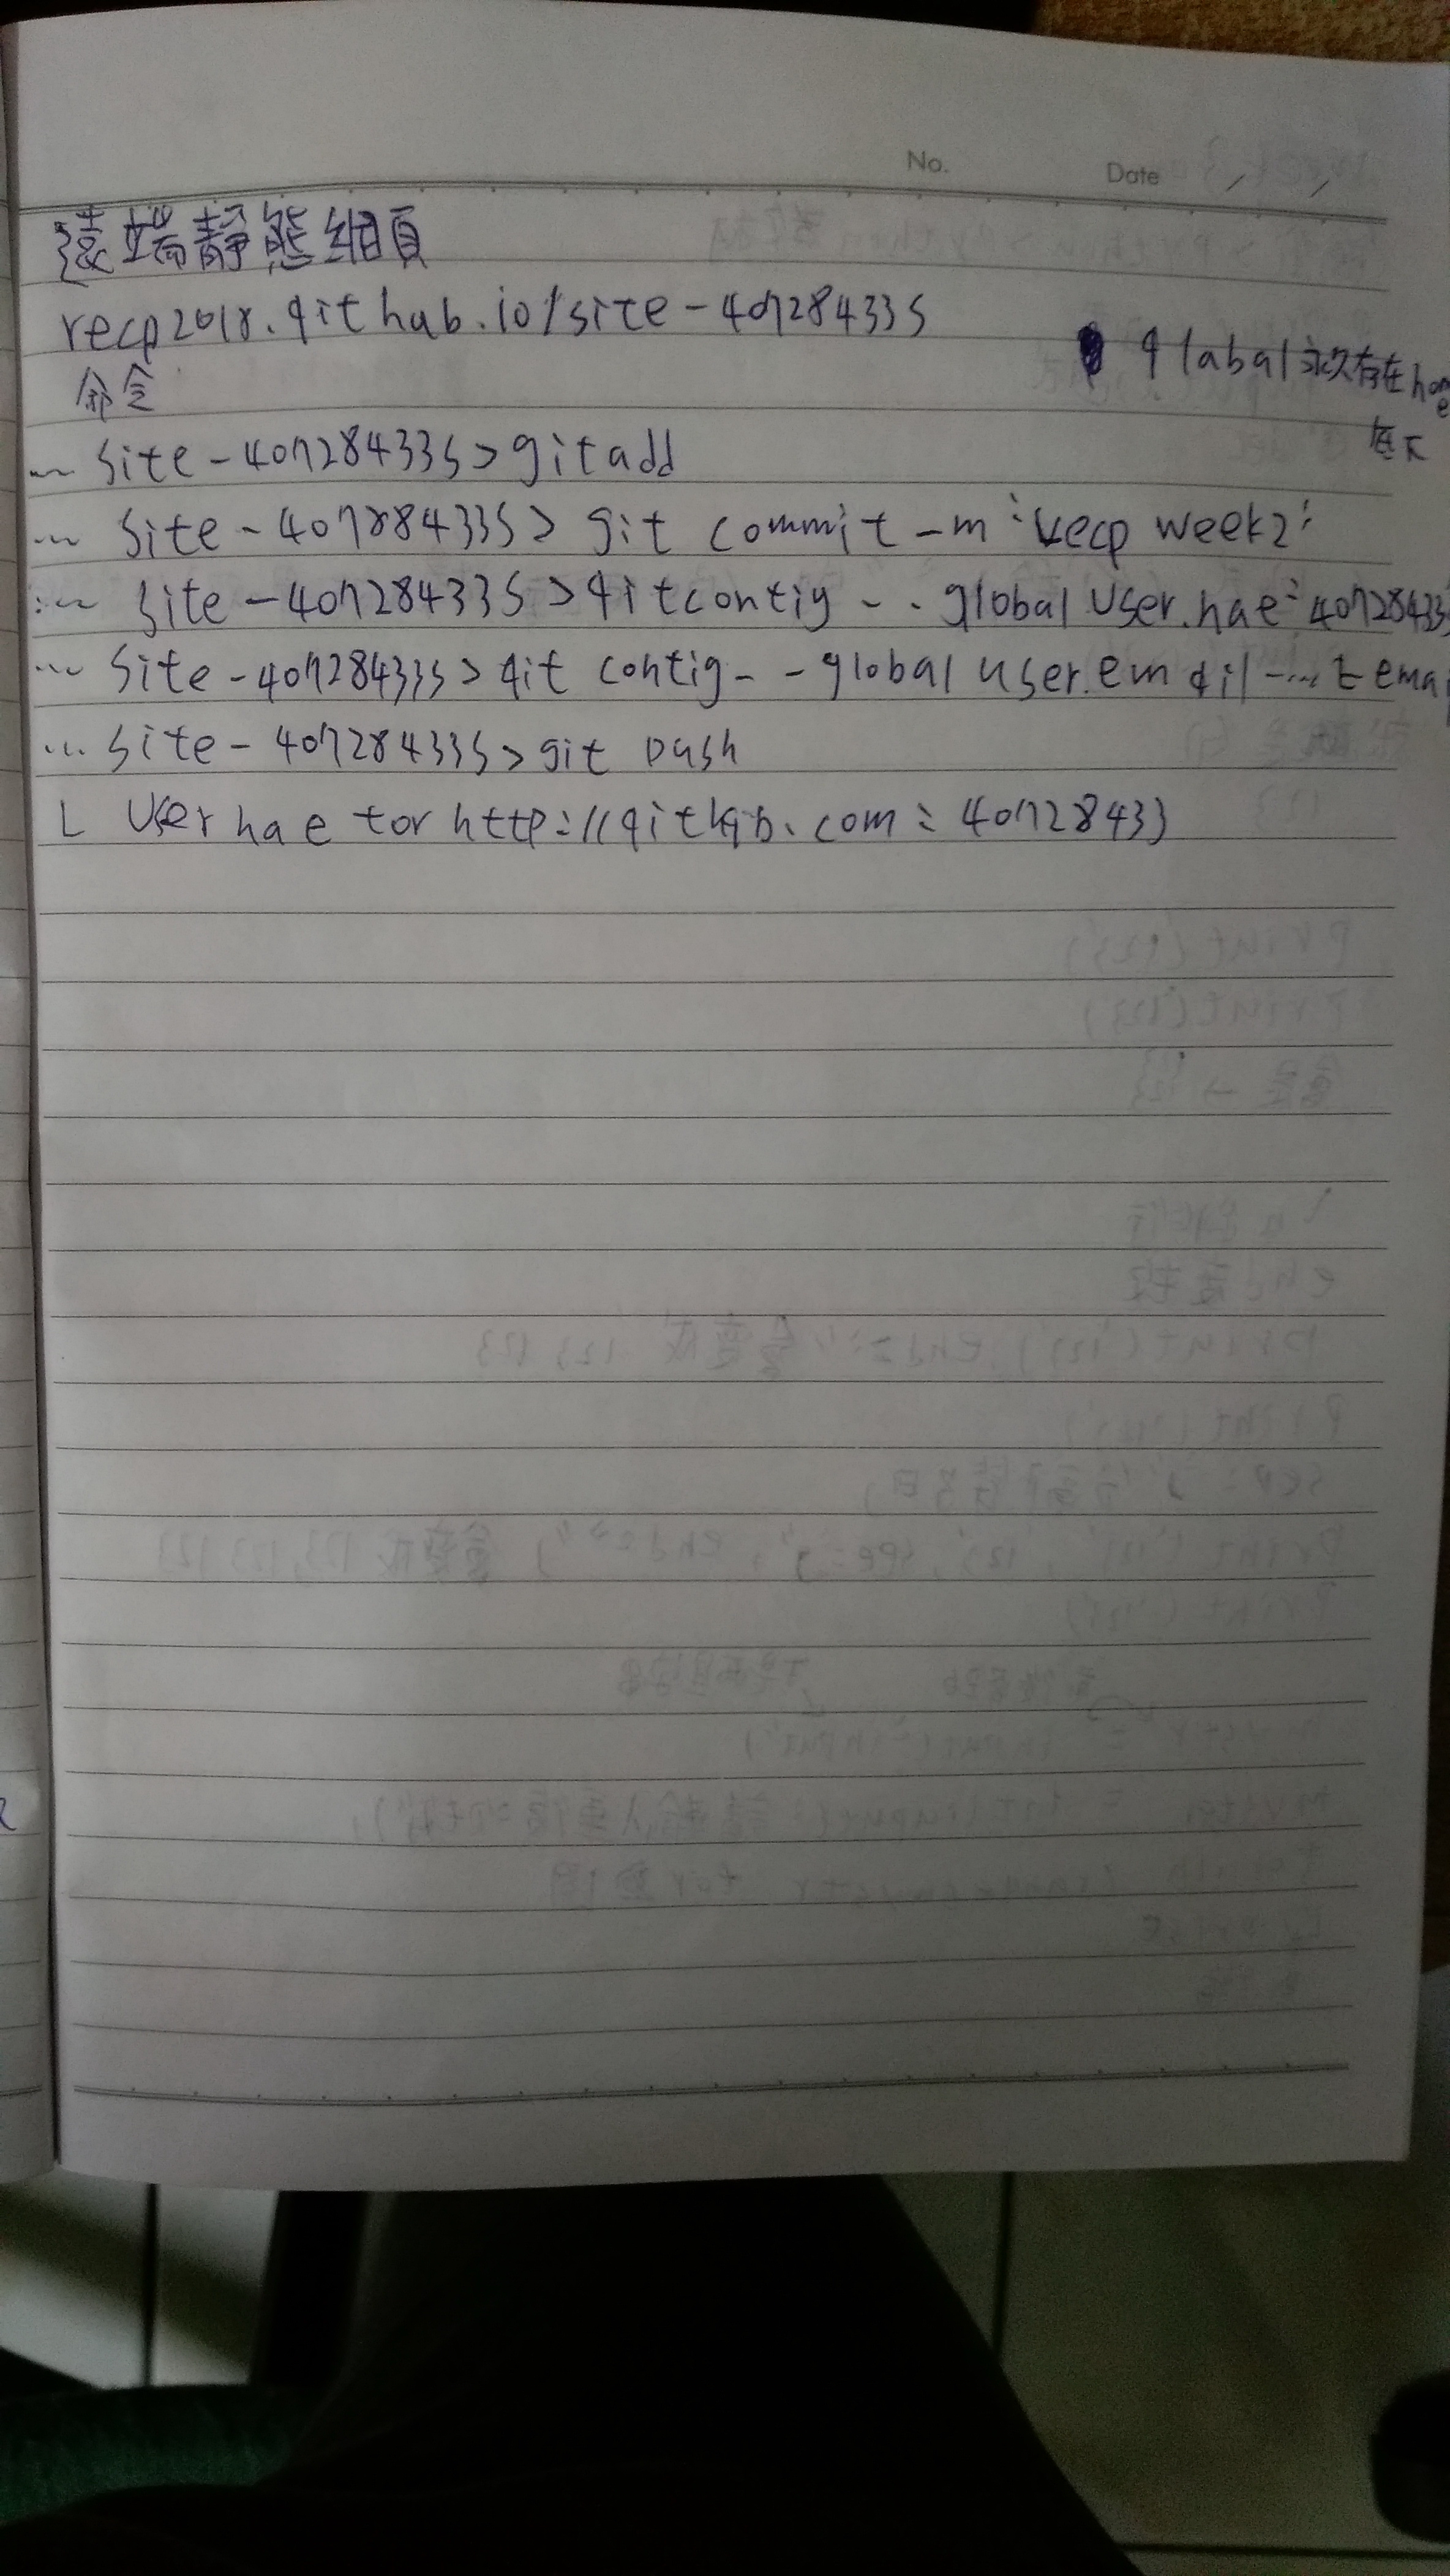 No. Date / /
遠端靜態網頁
recp2018.github.io/site-407284335
glabal永久存在home
底下
命令
~ site-407284335>git add
... site-407284335> git commit -m "recp week2"
... site-407284335>git config -- global user.nae=40728433
... site-407284335>git config -- global user.email
... site-407284335>git push
L User nae for http://github.com: 40728433